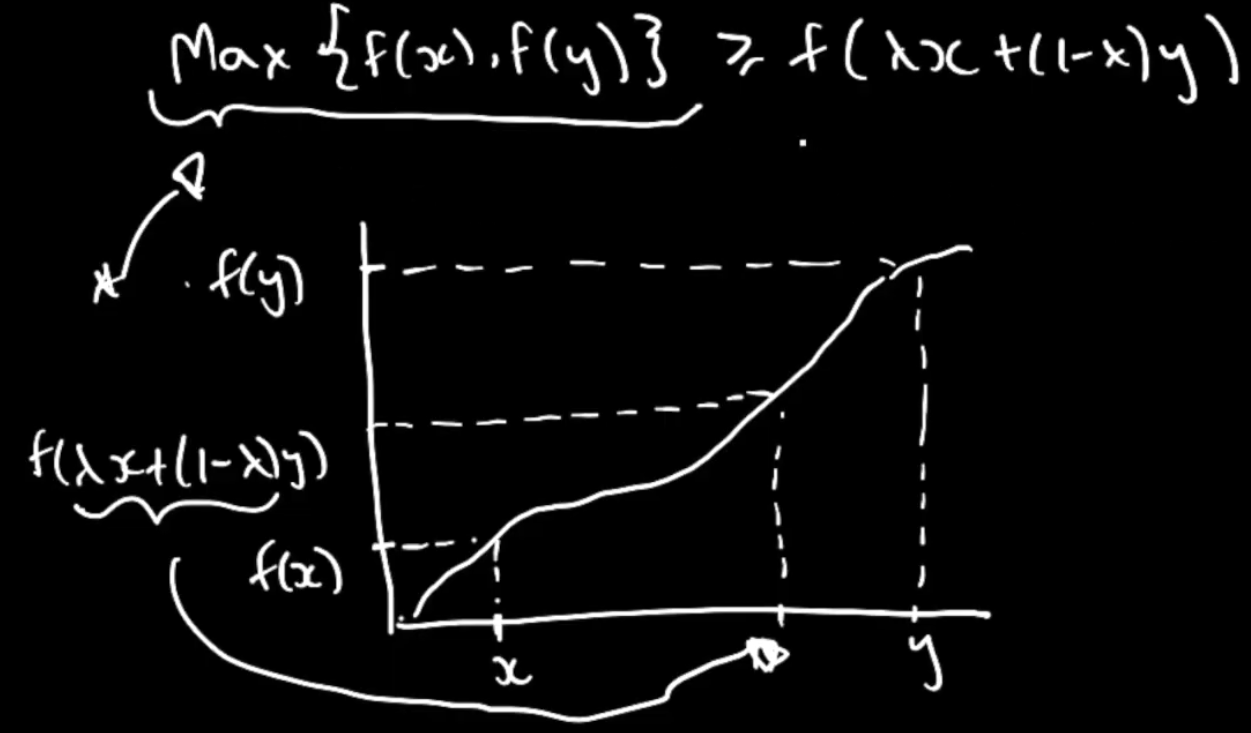 Max {f(x), f(y)} ≥ f(λx+(1-λ)y)
f(y)
f(λx+(1-λ)y)
f(x)
x
y